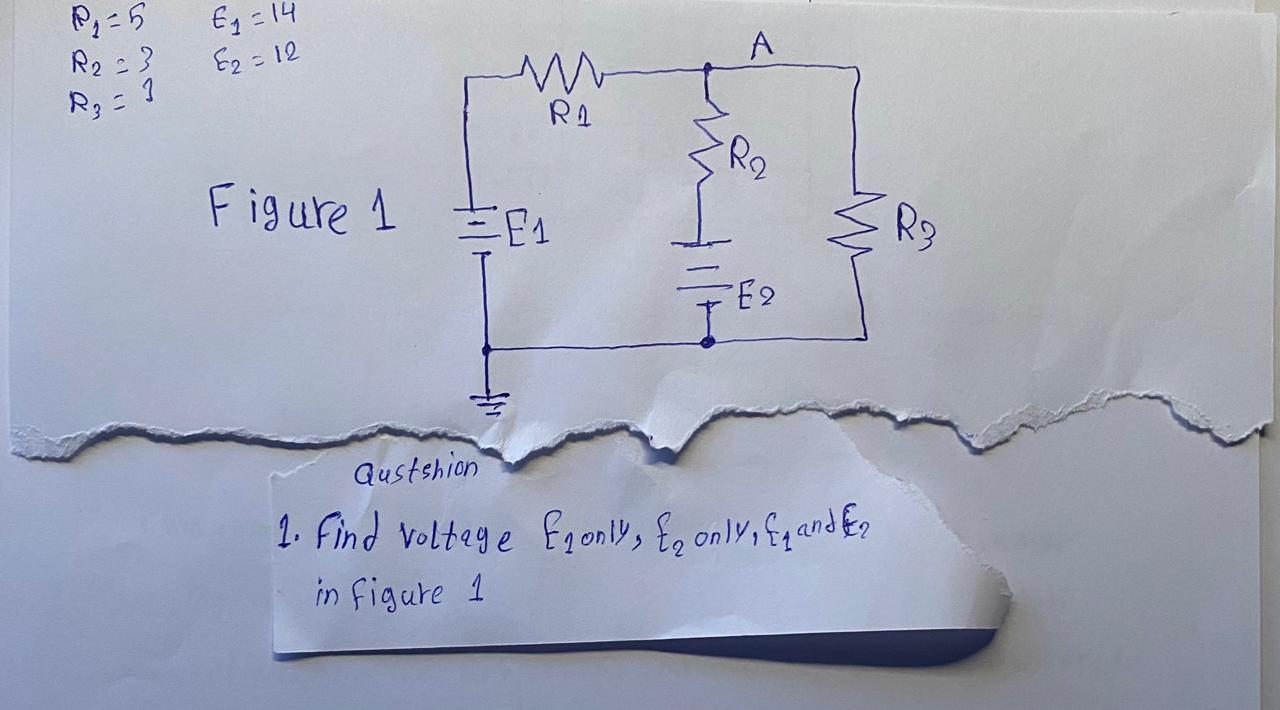 R1 = 5 E1 = 14
R2 = 3 E2 = 12
R3 = 1
A
R1
R2
Figure 1
E1
R3
E2
Qustshion
1. Find voltage E1 only, E2 only, E1 and E2
in figure 1